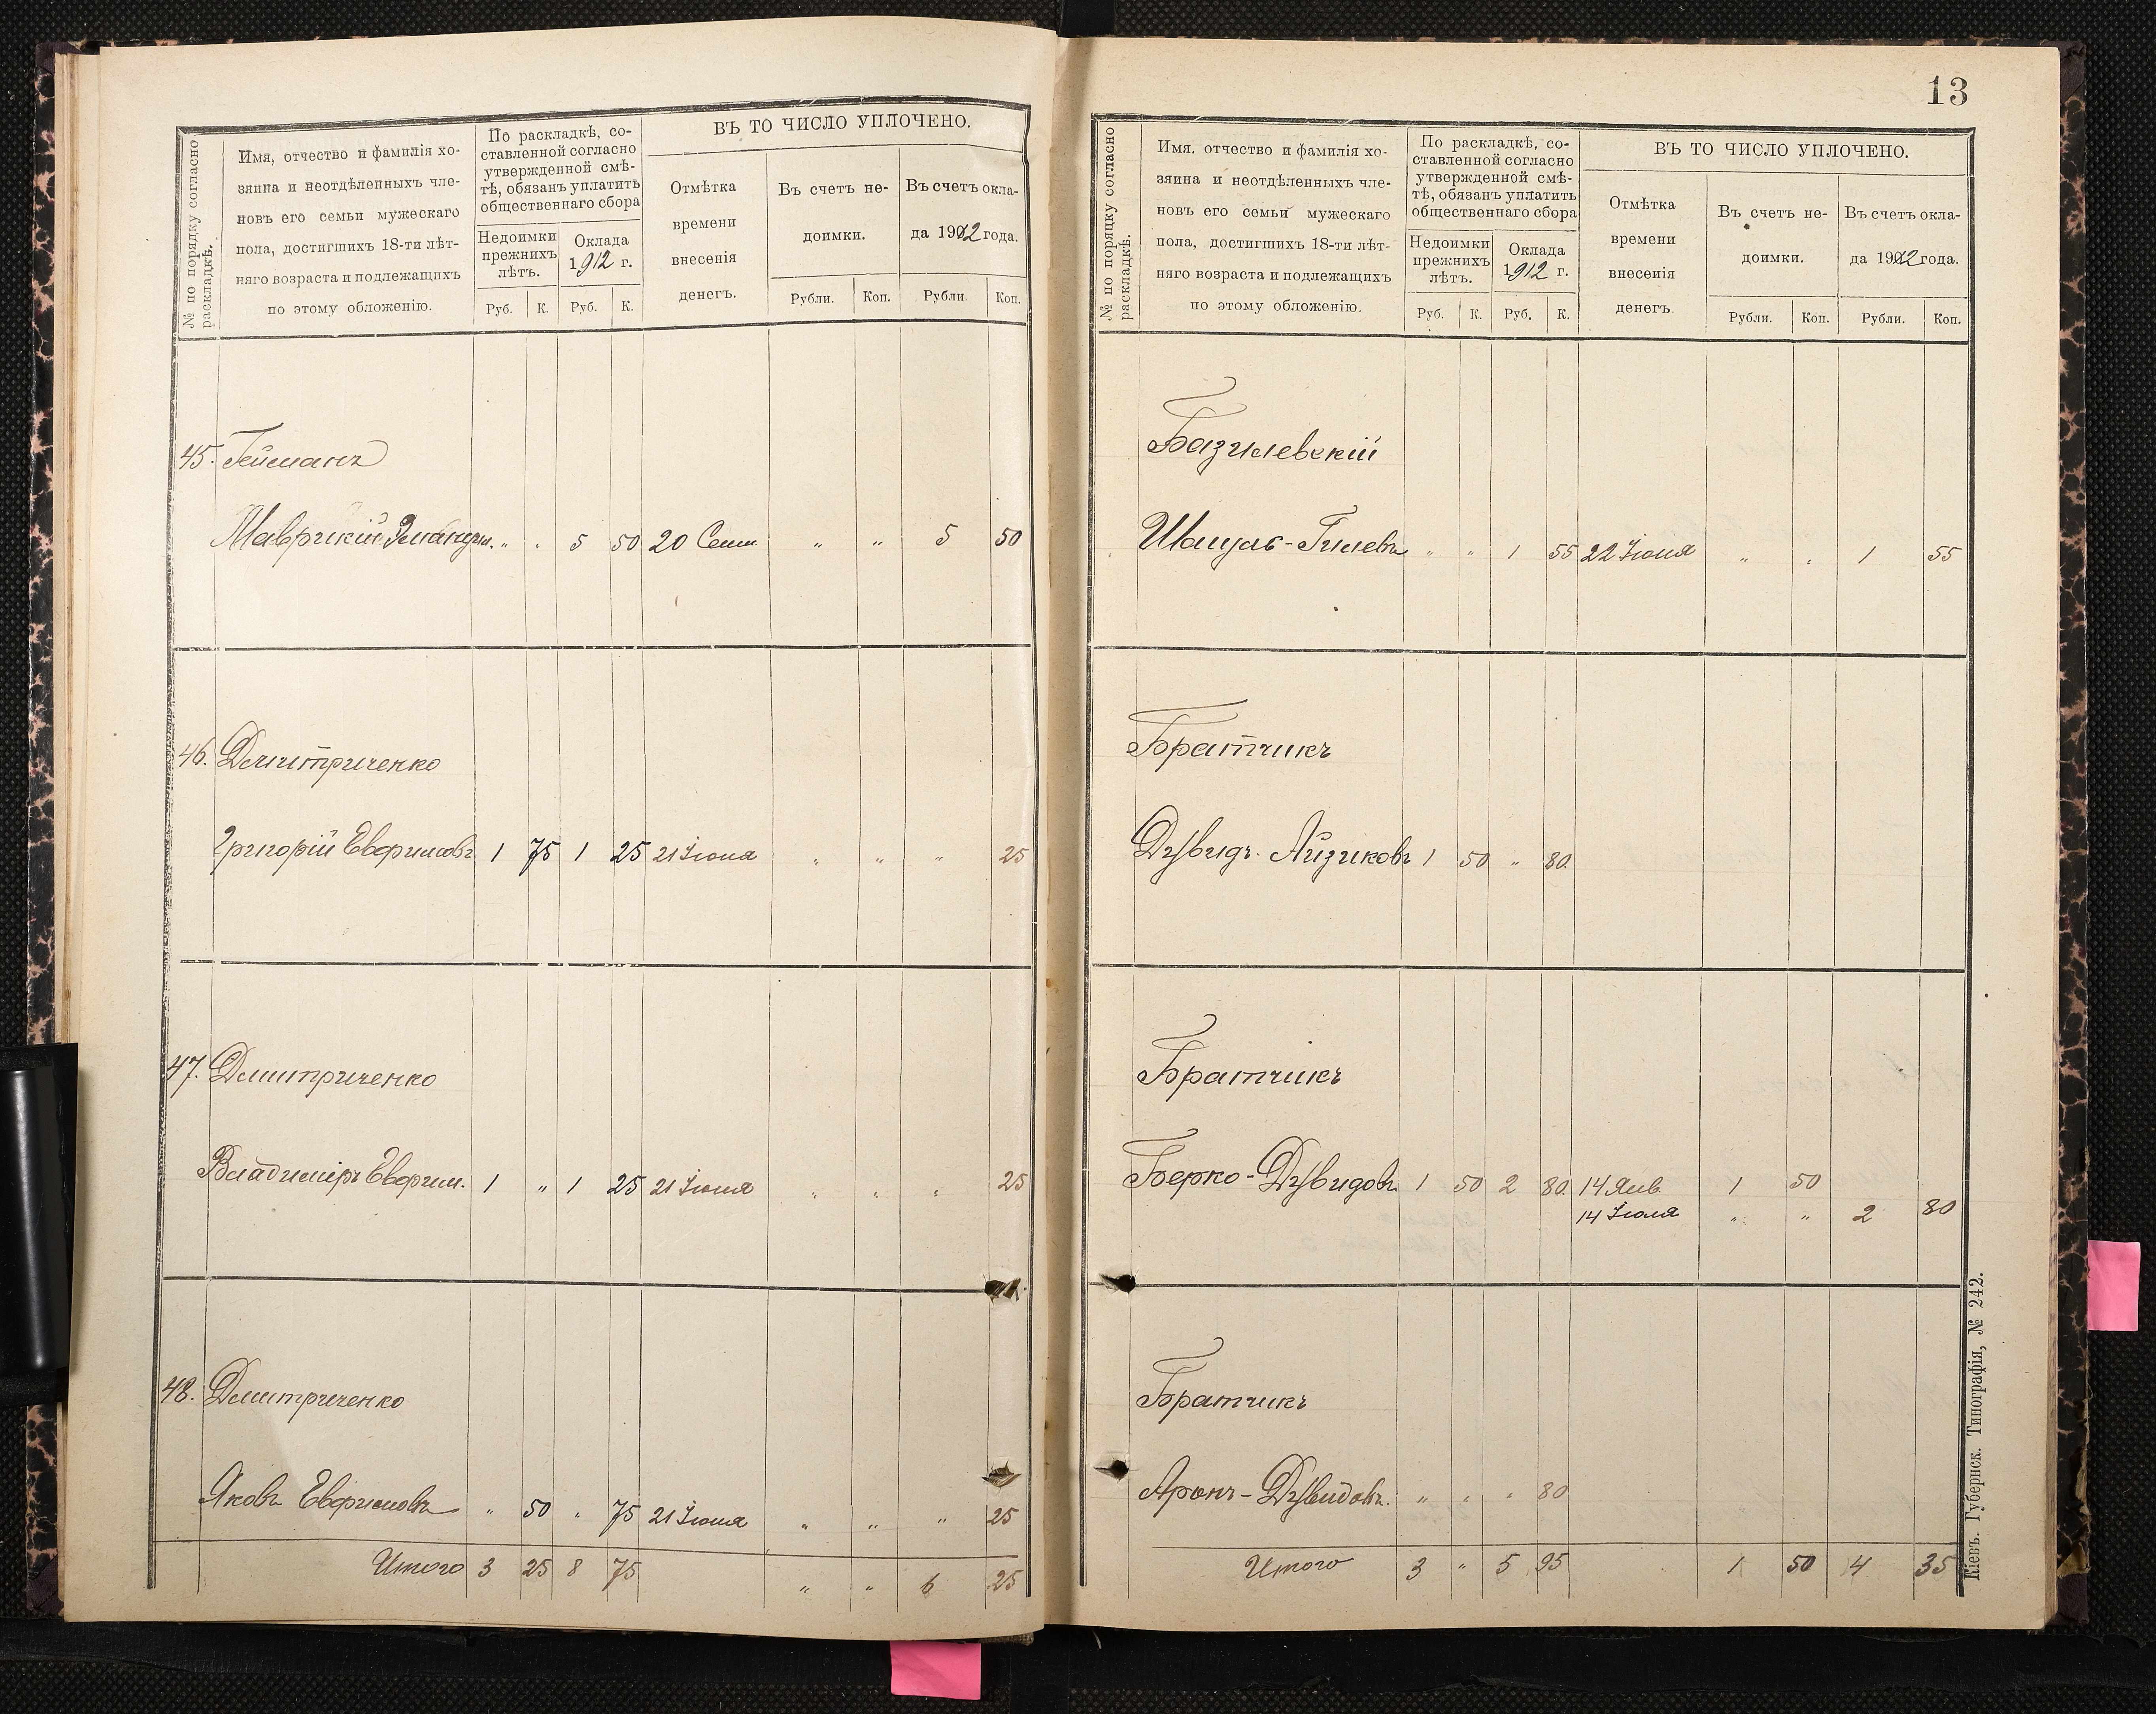 ВЪ ТО ЧИСЛО УПЛОЧЕНО.
№ по порядку согласно раскладкѣ.
Имя, отчество и фамилія хо-
зяина и неотдѣленныхъ чле-
новъ его семьи мужескаго
пола, достигшихъ 18-ти лѣт-
няго возраста и подлежащихъ
по этому обложенію.
По раскладкѣ, со-
ставленной согласно
утвержденной смѣ-
тѣ, обязанъ уплатить
общественнаго сбора
Недоимки
прежнихъ
лѣтъ.
Оклада
1912 г.
Руб. К. Руб. К.
Отмѣтка
времени
внесенія
денегъ.
Въ счетъ не-
доимки.
Въ счетъ окла-
да 1912 года.
Рубли. Коп. Рубли. Коп.
45. Гейманъ
Маврикій " " 5 50 20 Сент " " 5 50
46. Дмитриченко
Григорій Евфимовъ 1 75 1 25 21 Іюня " " " 25
47. Дмитриченко
Владиміръ Евфим. 1 " 1 25 21 Іюня " " " 25
48. Дмитриченко
Яковъ Евфимовъ " 50 " 75 21 Іюня " " " 25
Итого 3 25 8 75 " " 6 25
13
№ по порядку согласно раскладкѣ.
Имя, отчество и фамилія хо-
зяина и неотдѣленныхъ чле-
новъ его семьи мужескаго
пола, достигшихъ 18-ти лѣт-
няго возраста и подлежащихъ
по этому обложенію.
По раскладкѣ, со-
ставленной согласно
утвержденной смѣ-
тѣ, обязанъ уплатить
общественнаго сбора
Недоимки
прежнихъ
лѣтъ.
Оклада
1912 г.
Руб. К. Руб. К.
ВЪ ТО ЧИСЛО УПЛОЧЕНО.
Отмѣтка
времени
внесенія
денегъ.
Въ счетъ не-
доимки.
Въ счетъ окла-
да 1912 года.
Рубли. Коп. Рубли. Коп.
Базилевскій
Гилевъ " " 1 55 22 Іюня " " 1 55
Братчикъ
Дувидъ Айзиковъ 1 50 " 80
Братчикъ
Берко-Дувидовъ 1 50 2 80 14 Янв 1 50
14 Іюля " " 2 80
Братчикъ
Аронъ-Дувидовъ. " " " 80
Итого 3 " 5 95 1 50 4 35
Кіевъ. Губернск. Типографія, № 242.